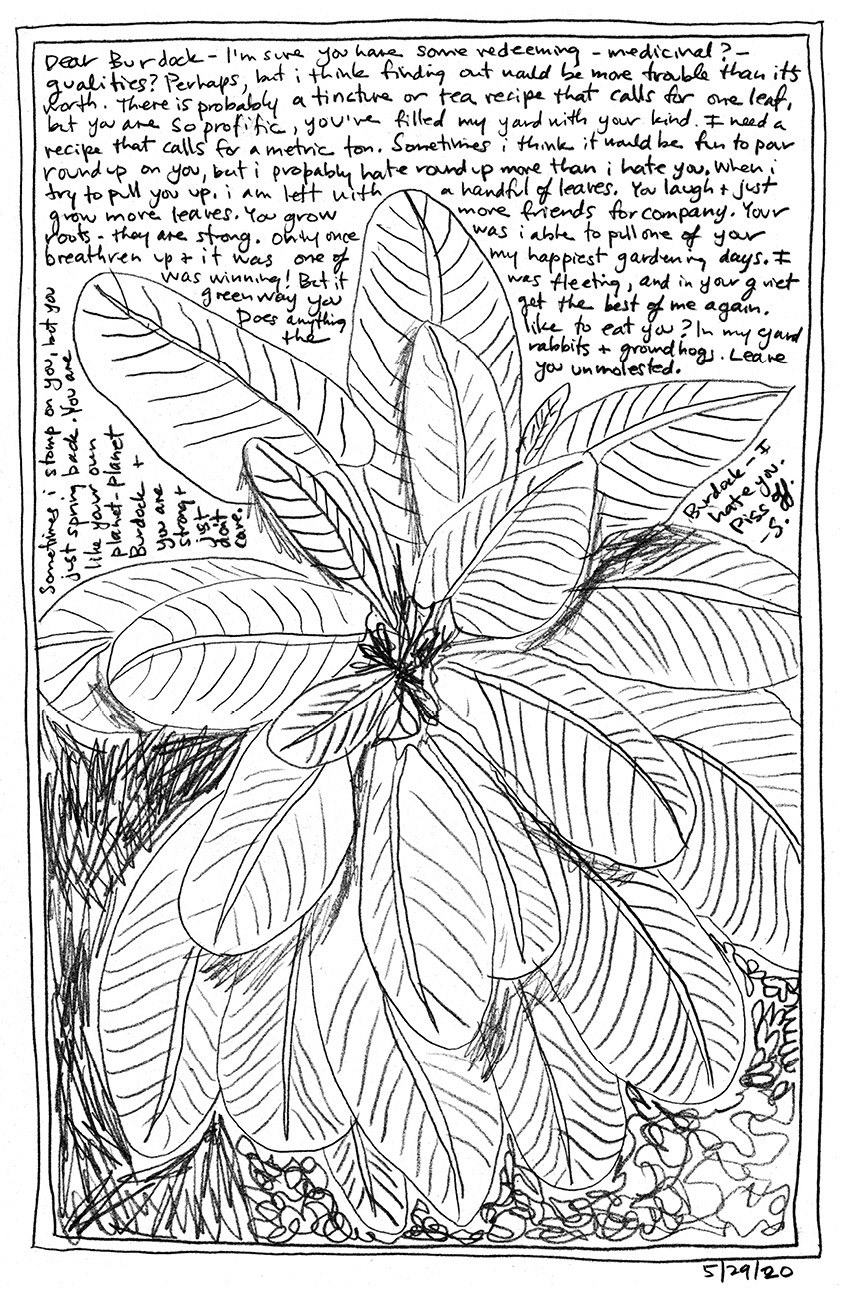 Dear Burdock - I'm sure you have some redeeming - medicinal? -
qualities? Perhaps, but i think finding out would be more trouble than it's
worth. There is probably a tincture or tea recipe that calls for one leaf,
but you are so profific, you've filled my yard with your kind. I need a
recipe that calls for a metric ton. Sometimes i think it would be fun to pour
roundup on you, but i probably hate roundup more than i hate you. When i
try to pull you up, i am left with a handful of leaves. You laugh + just
grow more leaves. You grow more friends for company. Your
roots - they are strong. Only once was i able to pull one of your
breathren up + it was one of my happiest gardening days. I
was winning! But it was fleeting, and in your quiet
green way you get the best of me again.
Does anything like to eat you? In my yard
the rabbits + groundhogs. Leave
you unmolested.
Sometimes i stomp on you, but you
just spring back. You are
like your own
planet - Planet
Burdock +
you are
strong +
just
don't
care.
Burdock - I
hate you.
Piss off.
-S.
5/29/20